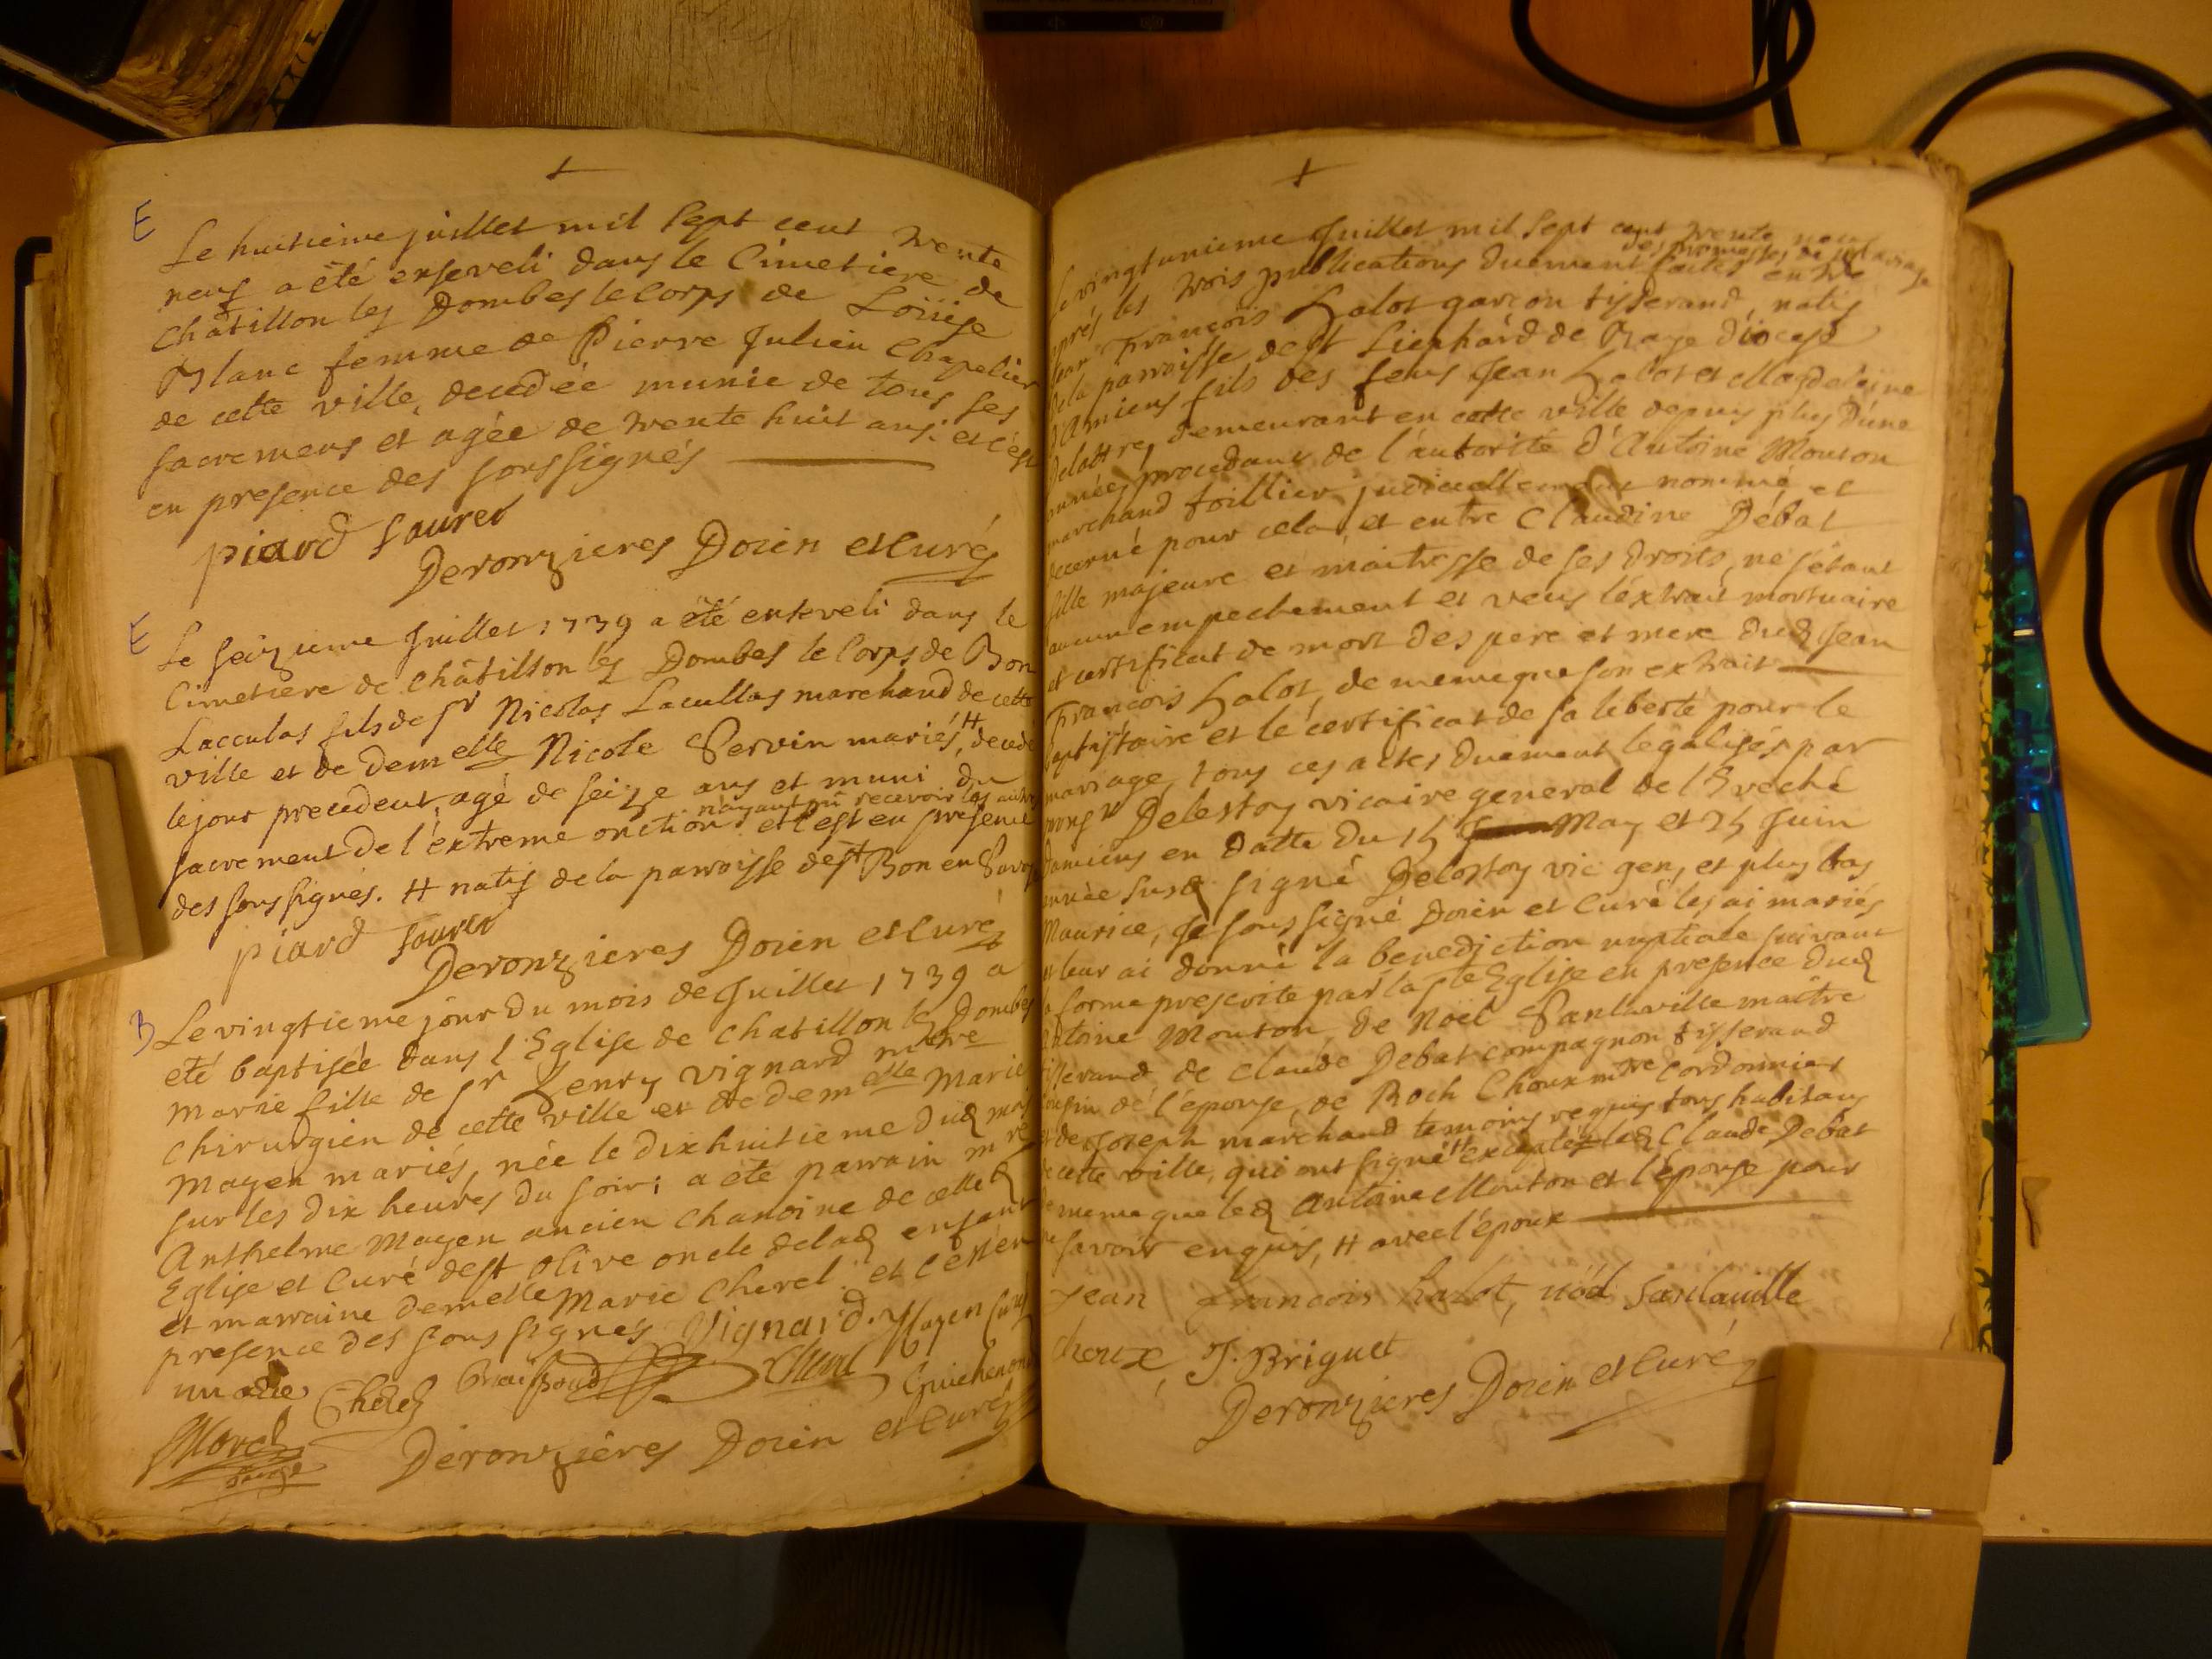 E
Le huitieme juillet mil sept cent trente
neuf a été enseveli dans le Cimetiere de
Châtillon les Dombes le Corps de Loüise
Blanc femme de Pierre Julien Chapelier
de cette ville, decedée munie de tous ses
sacremens et agée de trente huit ans. et c'est
en presence des soussignés
piard sauret
Deronzieres Doïen et Curé
E
Le seizieme Juillet 1739 a été enseveli dans le
Cimetiere de Châtillon les Dombes le Corps de Bon
Lacculas fils de sr Nicolas Lacullas marchand de cette
ville et de demelle Nicole Pervin mariés, # decedé
le jour precedent, agé de seize ans et muni du
n'ayant pû recevoir les autres
sacrement de l'extreme onction et c'est en presence
des soussignés. # natif de la parroisse de st Bon en Savoye
piard sauret
Deronzieres Doïen et Curé
B
Le vingtieme jour du mois de Juillet 1739 a
eté baptisée dans l'Eglise de Chatillon les Dombes
Marie fille de sr henry Vignard mtre
Chirurgien de cette ville et de demelle Marie
Mayen mariés, née le dixhuitieme dud mois
sur les dix heures du soir; a eté parrain mre
Anthelme Mayen ancien Chanoine de cette
Eglise et Curé de st Olive oncle de lad enfant
et marraine demelle Marie Cherel. et c'est en
presence des sous signés Vignard. Mayen Curé
Cherel
Guichenon
Morel
Deronzières Doïen et Curé
Le vingtunieme Juillet mil sept cent trente neuf
des promesses de mariage
aprés les trois publications duement faites entre
Jean François halot garçon tisserand, natif
de la parroisse de st Liephard de Raye diocese
d'Amiens fils des feus Jean halot et Magdelaine
Delattre, demeurant en cette ville depuis plus d'une
année, procedant de l'autorité d'Antoine Mouton
marchand toillier judiciellement nommé et
decerné pour cela, et entre Claudine Débat
fille majeure et maitresse de ses droits, ne s'étant
aucun empechement et veus l'éxtrait mortuaire
et certificat de mort des pere et mere dud Jean
François halot, de meme que son extrait
baptistaire et le certificat de sa liberté pour le
mariage, tous ces actes duement legalisés par
mongr Delestoy vicaire general de l'Eveché
d'amiens en datte du 15 May et 25 Juin
année susd signé Delestoy vic gen, et plus bas
Maurice, Je sous signé Doïen et Curé les ai mariés
et leur ai donné la benediction nuptiale suivant
la forme prescrite par la ste Eglise en presence dud
Antoine Mouton, de Noël Santaville maître
tisserand, de Claude Debat compagnon tisserand
cousin de l'épouse, de Roch Choux mtre Cordonnier
et de Joseph marchand temoins requis tous habitans
de cette ville, qui ont signé # exceptés led Claude Debat
de meme que led Antoine Mouton et l'épouse pour
ne savoir enquis, # avec l'époux
Jean francois halot, nöel santauille
choux, J. Briguet
Deronzieres Doïen et Curé